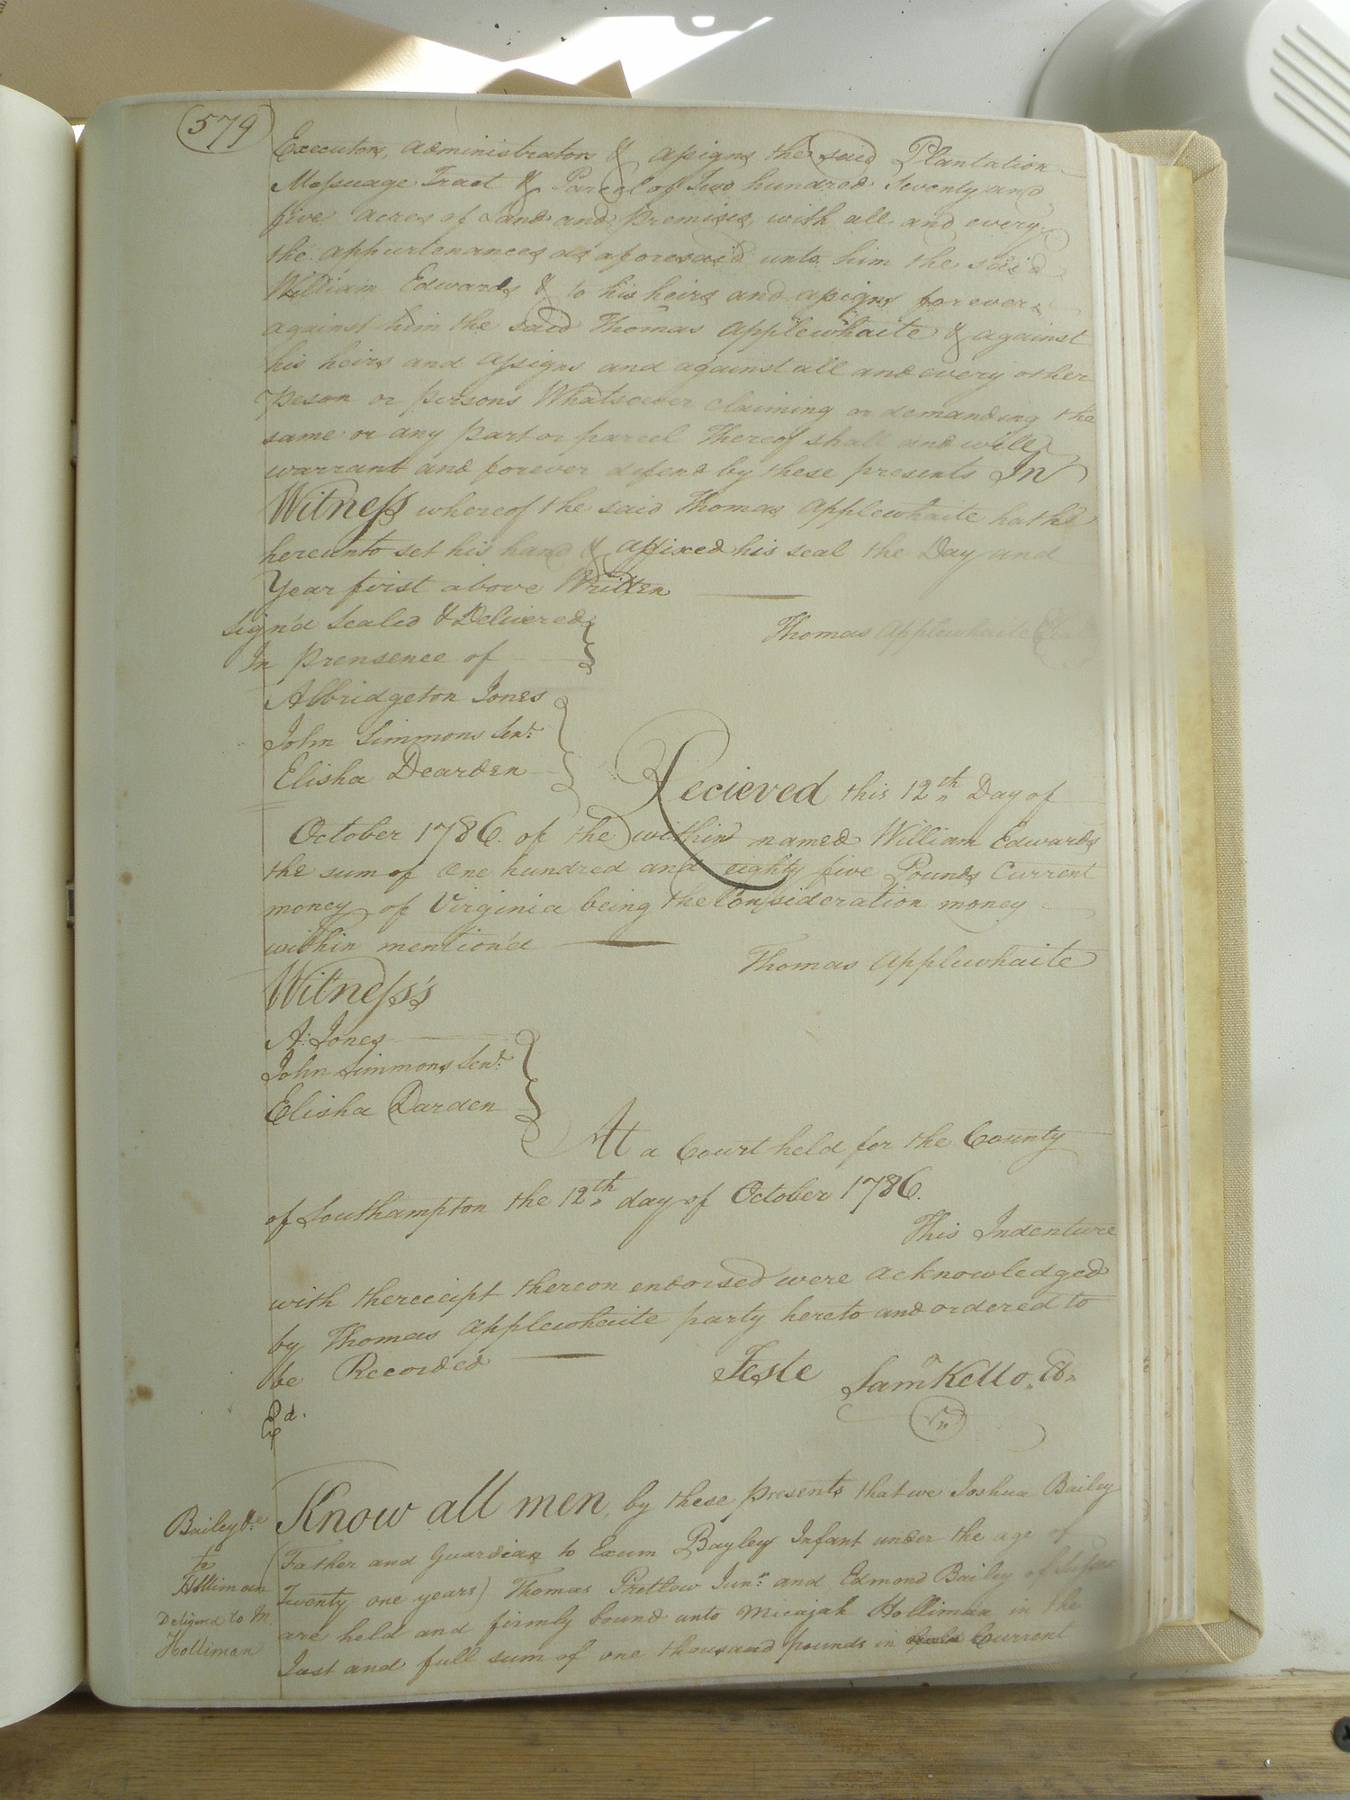 579
Executors, administrators & assigns the said Plantation
Messuage Tract & Parcel of Two hundred Seventy and
five acres of Land and premises, with all and every
the appurtenances as aforesaid unto him the said
William Edwards & to his heirs and assigns for ever
against him the said Thomas Applewhaite & against
his heirs and assigns and against all and every other
Peson or persons Whatsoever claiming or demanding the
same or any part or parcel thereof shall and will
warrant and forever defend by these presents In
Witness whereof the said Thomas Applewhaite hath
hereunto set his hand & affixed his seal the Day and
Year first above Written
Sign'd Sealed & Delivered
In prensence of
Thomas Applewhaite
Albridgeton Jones
John Simmons Senr.
Elisha Dearden
Recieved this 12th Day of
October 1786. of the within named William Edwards
the sum of One hundred and eighty five Pounds Current
money of Virginia being the Consideration money
within mention'd
Thomas Applewhaite
Witness's
A: Jones
John Simmons Senr.
Elisha Darden
At a Court held for the County
of Southampton the 12th day of October 1786.
This Indenture
with thereceipt thereon endorsed were acknowledged
by Thomas Applewhaite party hereto and ordered to
be Recorded
Teste Saml Kello. Ct.
Exd.
Bailey &c
to
Holliman
Know all men, by these presents that we Joshua Bailey
Father and Guardian to Exum Bayley Infant under the age of
Twenty one years) Thomas Pretlow Junr. and Edmond Bailey of
are held and firmly bound unto Micajah Holliman in the
Just and full sum of one thousand pounds in Current
Delig'd to M.
Holliman